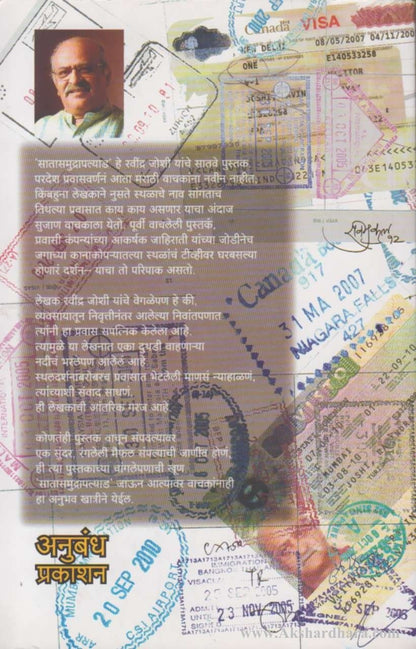 Canada
VISA
08/05/2007 04/11/20
NEW DELHI
ONE
E140533258
VISITOR
'सातासमुद्रापल्याड' हे रवींद्र जोशी यांचे सातवे पुस्तक.
परदेश प्रवासवर्णनं आता मराठी वाचकांना नवीन नाहीत.
किंबहुना लेखकाने नुसते स्थळाचे नाव सांगताच
तिथल्या प्रवासात काय काय असणार याचा अंदाज
सुजाण वाचकाला येतो. पूर्वी वाचलेली पुस्तकं,
प्रवासी कंपन्यांच्या आकर्षक जाहिराती यांच्या जोडीनेच
जगाच्या कानाकोपऱ्यातल्या स्थळांचं टीव्हीवर घरबसल्या
होणारं दर्शन- याचा तो परिपाक असतो.
लेखक रवींद्र जोशी यांचे वेगळेपण हे की,
व्यवसायातून निवृत्तीनंतर आलेल्या निवांतपणात
त्यांनी हा प्रवास सपत्निक केलेला आहे.
त्यामुळे या लेखनात एका दुथडी वाहणाऱ्या
नदीचं भरलेपण आलेलं आहे.
स्थलदर्शनाबरोबरच प्रवासात भेटलेली माणसं न्याहाळणं,
त्यांच्याशी संवाद साधणं,
ही लेखकाची आंतरिक गरज आहे.
कोणतंही पुस्तक वाचून संपवल्यावर
एक सुंदर, रंगलेली मैफल संपल्याची जाणीव होणं,
ही त्या पुस्तकाच्या चांगलेपणाची खूण.
'सातासमुद्रापल्याड' जाऊन आल्यावर वाचकांनाही
हा अनुभव खात्रीने येईल.
Canada
917
31 MA 2007
NIAGARA FALLS
427
अनुबंध
प्रकाशन
20 SEP 2010
C.S.I. AIRPORT
IMMIGRATION
23 NOV 2005
SEP 2005
www.Akshardhara.com